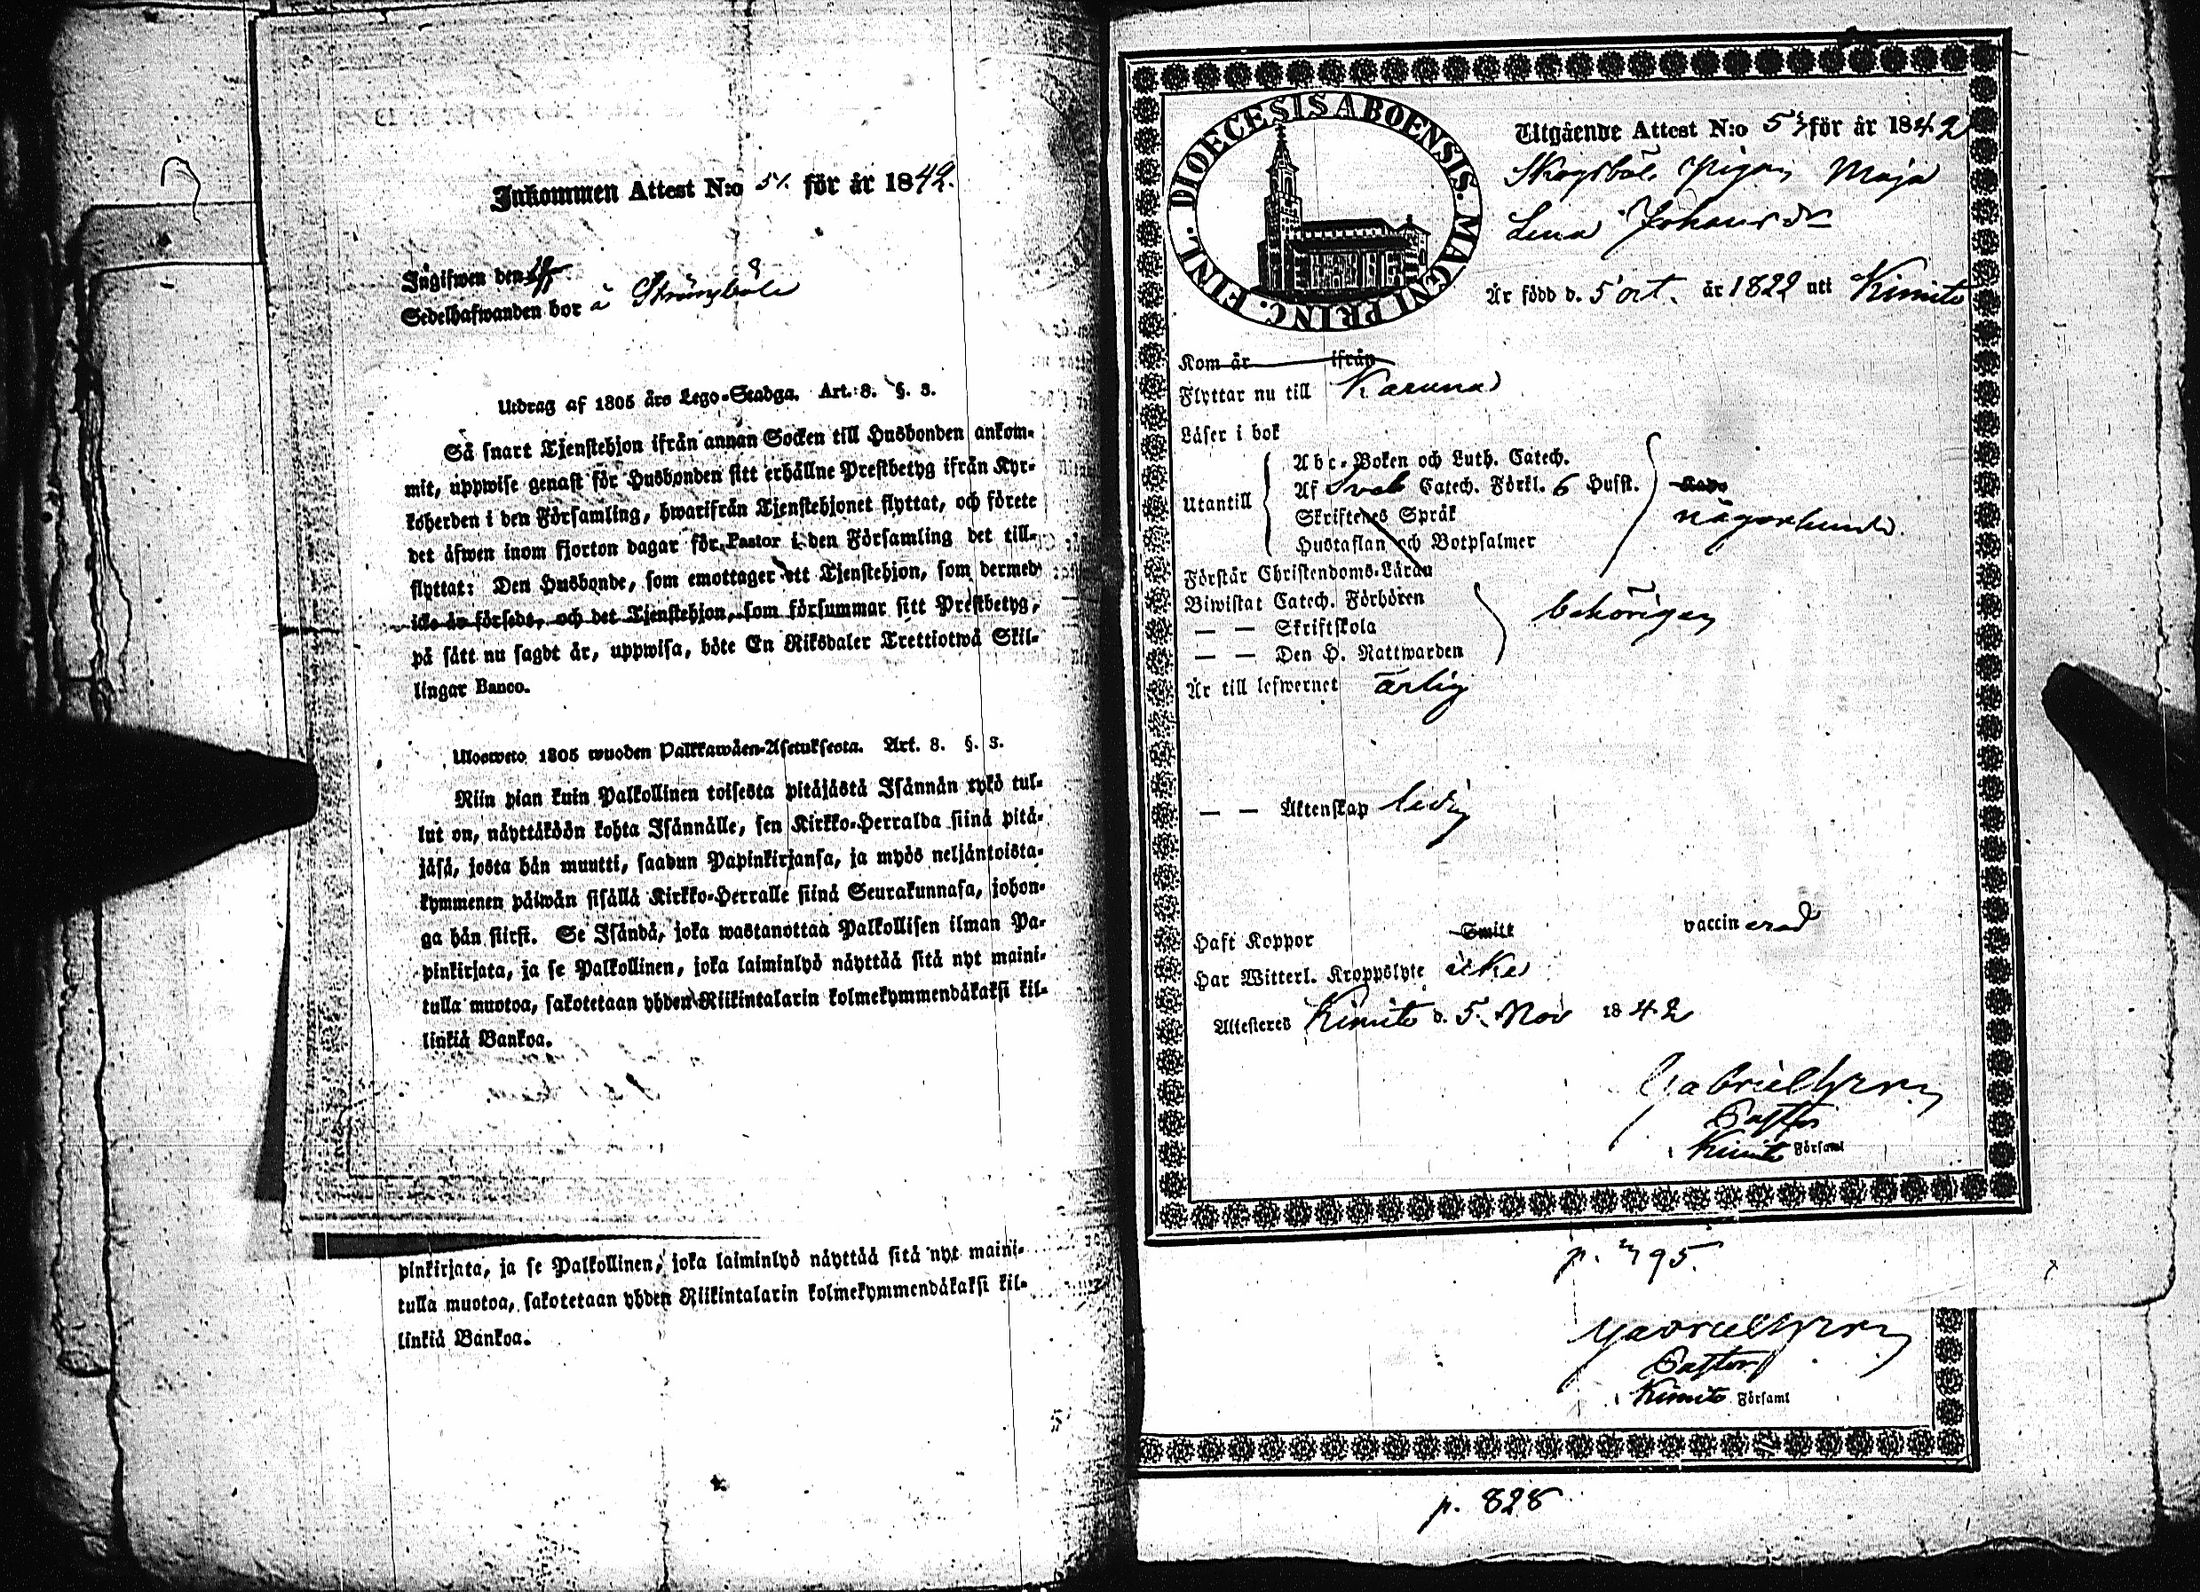 Inkommen Attest N:o 51. för år 1842.
Ingifwen den
Sedelhafwanden bor å Strångböle
Utdrag af 1805 års Lego-Stadga. Art. 8. §. 3.
Så snart Tjenstehjon ifrån annan Socken till Husbonden ankom-
mit, uppwise genast för Husbonden sitt erhållne Prestbetyg ifrån Kyr-
koherden i den Församling, hwarifrån Tjenstehjonet flyttat, och förete
det äfwen inom fjorton dagar för Pastor i den Församling det till-
flyttat: Den Husbonde, som emottager ett Tjenstehjon, som dermed
icke är försedt, och det Tjenstehjon, som försummar sitt Prestbetyg,
på sätt nu sagdt är, uppwisa, böte En Riksdaler Trettiotwå Skil-
lingar Banco.
Ulosweto 1805 wuoden Palkkawäen-Asetuksesta. Art. 8. §. 3.
Niin pian kuin Palkollinen toisesta pitäjästä Isännän tykö tul-
lut on, näyttäköön kohta Isännälle, sen Kirkko-Herralda siinä pitä-
jäsä, josta hän muutti, saadun Papinkirjansa, ja myös neljäntoista-
kymmenen päiwän sisällä Kirkko-Herralle siinä Seurakunnasa, johon-
ga hän siirsi. Se Isändä, joka wastanottaa Palkollisen ilman Pa-
pinkirjata, ja se Palkollinen, joka laiminlyö näyttää sitä nyt maini-
tulla muotoa, sakotetaan yhden Riikintalarin kolmekymmendäkaksi kil-
linkiä Bankoa.
pinkirjata, ja se Palkollinen, joka laiminlyö näyttää sitä nyt maini-
tulla muotoa, sakotetaan yhden Riikintalarin kolmekymmendäkaksi kil-
linkiä Bankoa.
DIOECESIS ABOENSIS. MAGNI PRINC. FINL.
Utgående Attest N:o för år 1842
Skogsböle Pigan Maja
Lena Johansdr
Är född d. 5 oct. år 1822 uti Kimito
Kom år ifrån
Flyttar nu till Karuna
Läser i bok
Utantill
Abc-Boken och Luth. Catech.
Af Sveb Catech. Förkl. 6 Hufst.
Skriftenes Språk
Hustaflan och Botpsalmer
någorlunda
Förstår Christendoms-Läran
Biwistat Catech. Förhören
— — Skriftskola
— — Den H. Nattwarden
behörigen
Är till lefwernet ärlig
— — Äktenskap ledig
Haft Koppor Smitt vaccinerad
Har Witterl. Kroppslyte icke
Attesteres Kimito d. 5. Nov 1842
Gabriel
Pastor
i Kimito Församl
p. 795.
Gabriel
Pastor
i Kimito Församl
p. 828